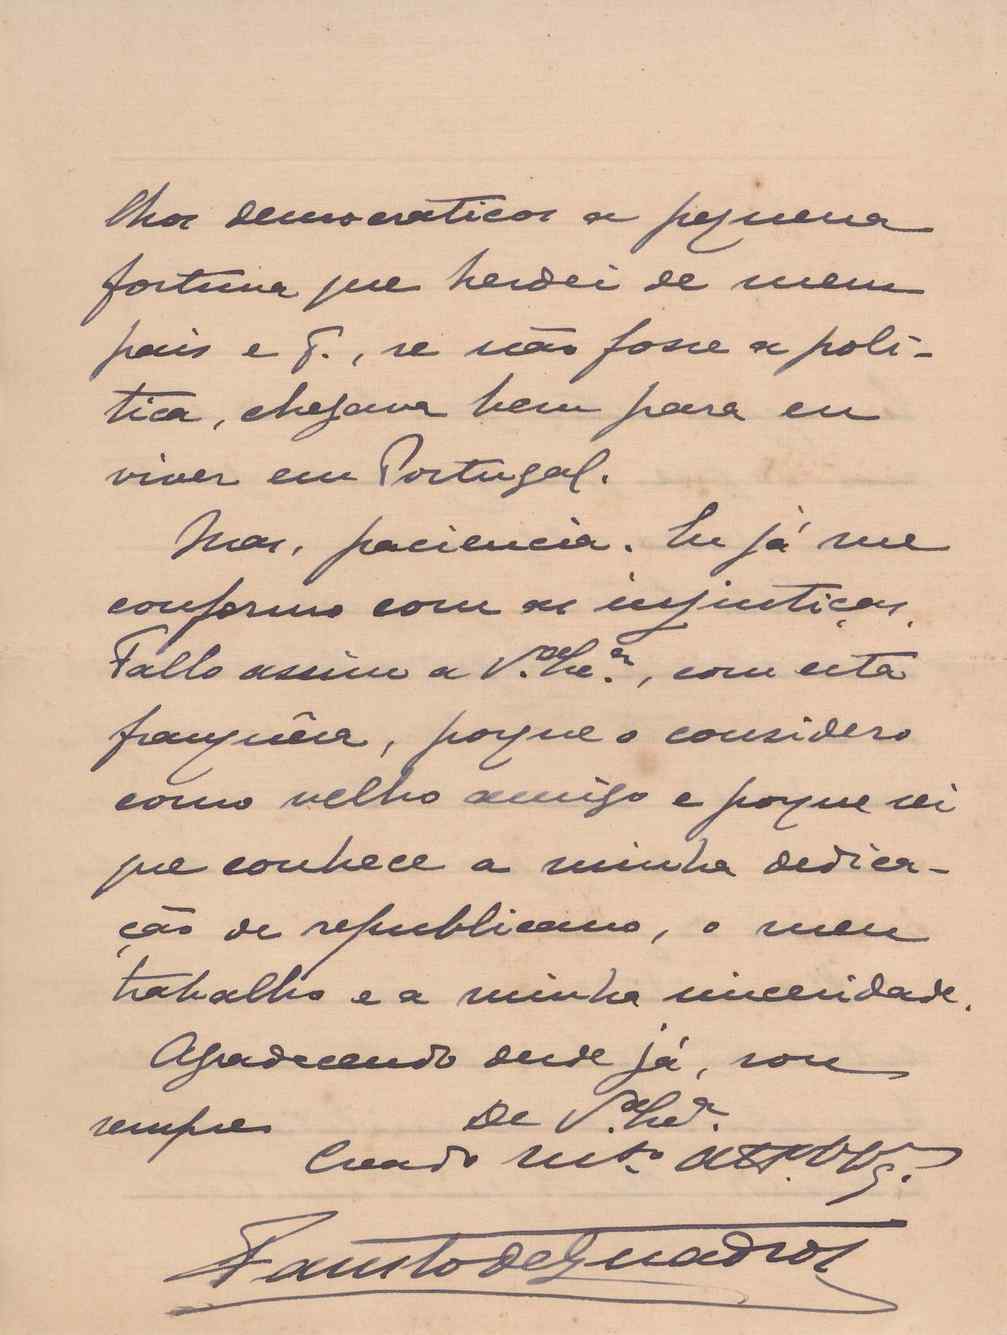 lhos democraticos a pequena
fortuna que herdei de meus
pais e q., se não fosse a poli-
tica, chegava bem para eu
viver em Portugal.
Mas, paciencia. Eu já me
conformo com as injustiças.
Fallo assim a V. Ex.ª, com esta
franquêsa, porque o considero
como velho amigo e porque sei
que conhece a minha dedica-
ção de republicano, o meu
trabalho e a minha sinceridade.
Agradecendo desde já, sou
sempre De V. Ex.ª
Creado m.to att.º
Fausto de Quadros